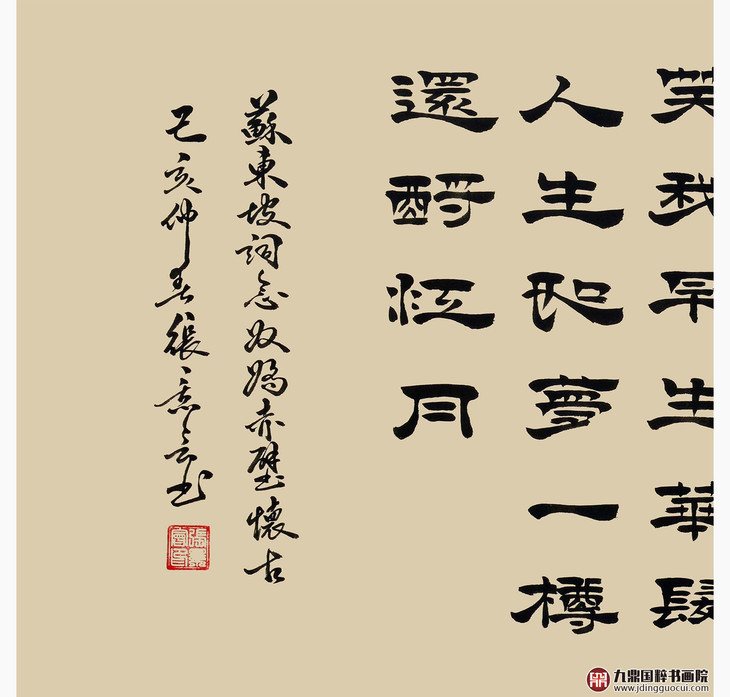 笑我早生華髮
人生如夢一樽
還酹江月
蘇東坡詞念奴嬌赤壁懷古
己亥仲春張意会书
九鼎国粹书画院
www.jdingguocui.com